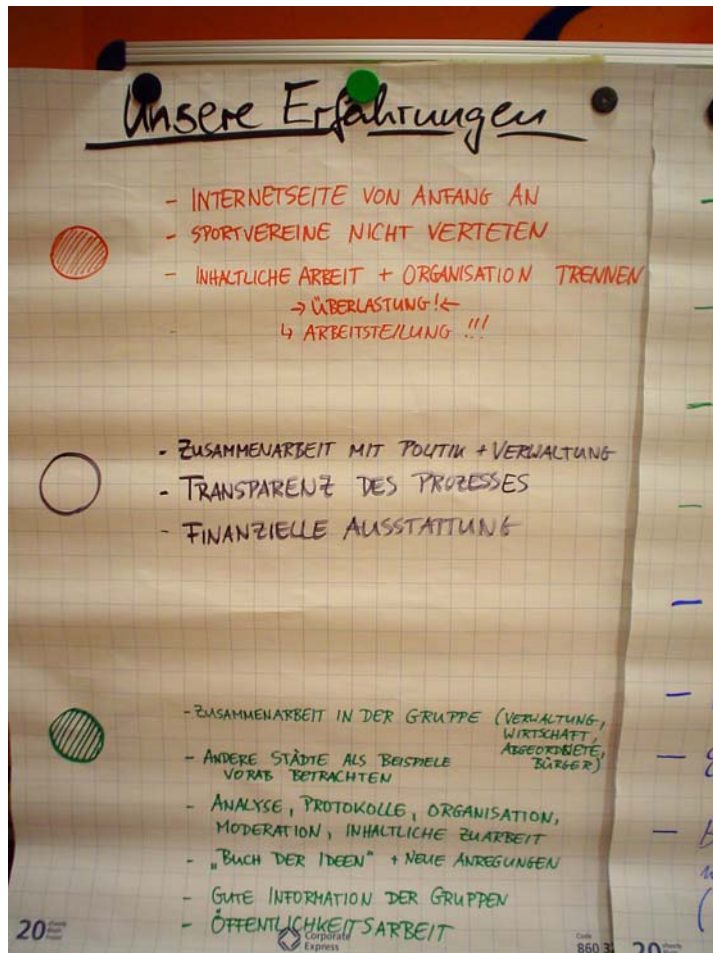 Unsere Erfahrungen
- INTERNETSEITE VON ANFANG AN
- SPORTVEREINE NICHT VERTETEN
- INHALTLICHE ARBEIT + ORGANISATION TRENNEN
→ ÜBERLASTUNG! ←
↳ ARBEITSTEILUNG !!!
- ZUSAMMENARBEIT MIT POLITIK + VERWALTUNG
- TRANSPARENZ DES PROZESSES
- FINANZIELLE AUSSTATTUNG
- ZUSAMMENARBEIT IN DER GRUPPE (VERWALTUNG,
WIRTSCHAFT,
ABGEORDNETE,
BÜRGER)
- ANDERE STÄDTE ALS BEISPIELE
VORAB BETRACHTEN
- ANALYSE, PROTOKOLLE, ORGANISATION,
MODERATION, INHALTLICHE ZUARBEIT
- „BUCH DER IDEEN" + NEUE ANREGUNGEN
- GUTE INFORMATION DER GRUPPEN
- ÖFFENTLICHKEITSARBEIT
20
Corporate
Express
Code
860 3
20